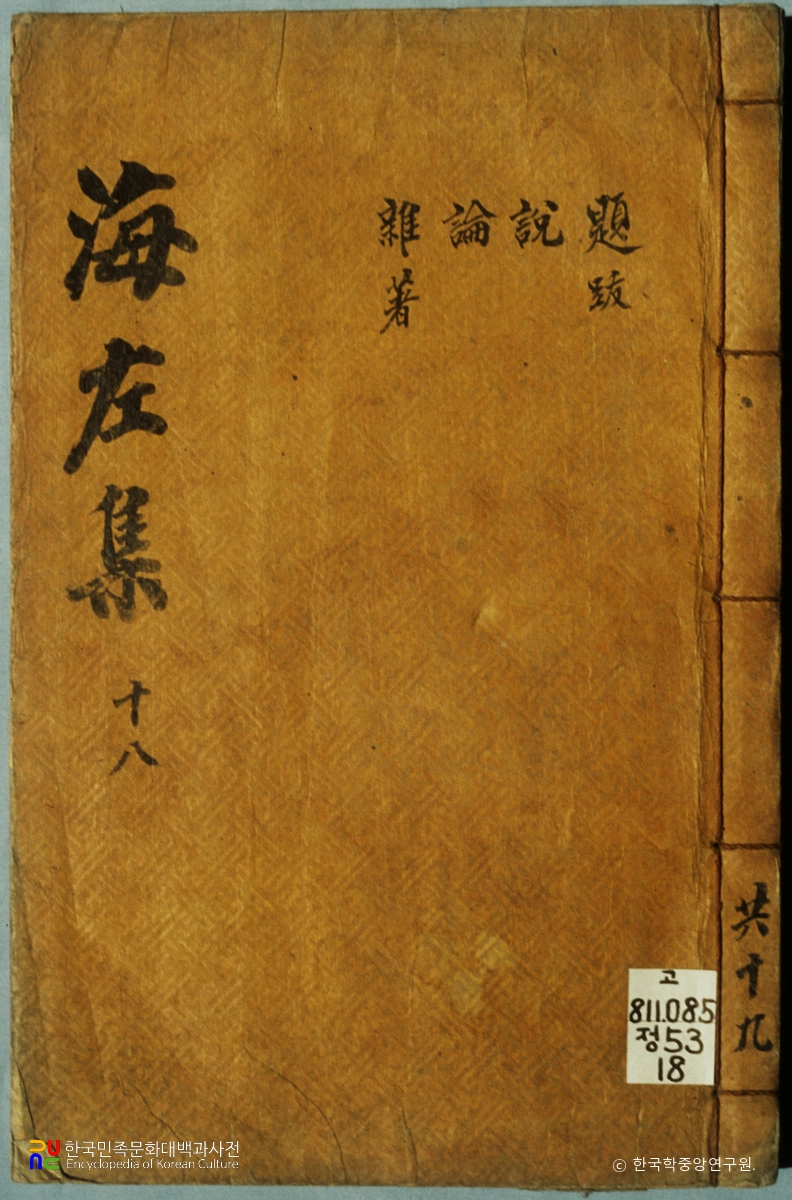 題跋
說
論
雜著
海左集
十八
共十九
고
811.085
정53
18
한국민족문화대백과사전
Encyclopedia of Korean Culture
© 한국학중앙연구원.